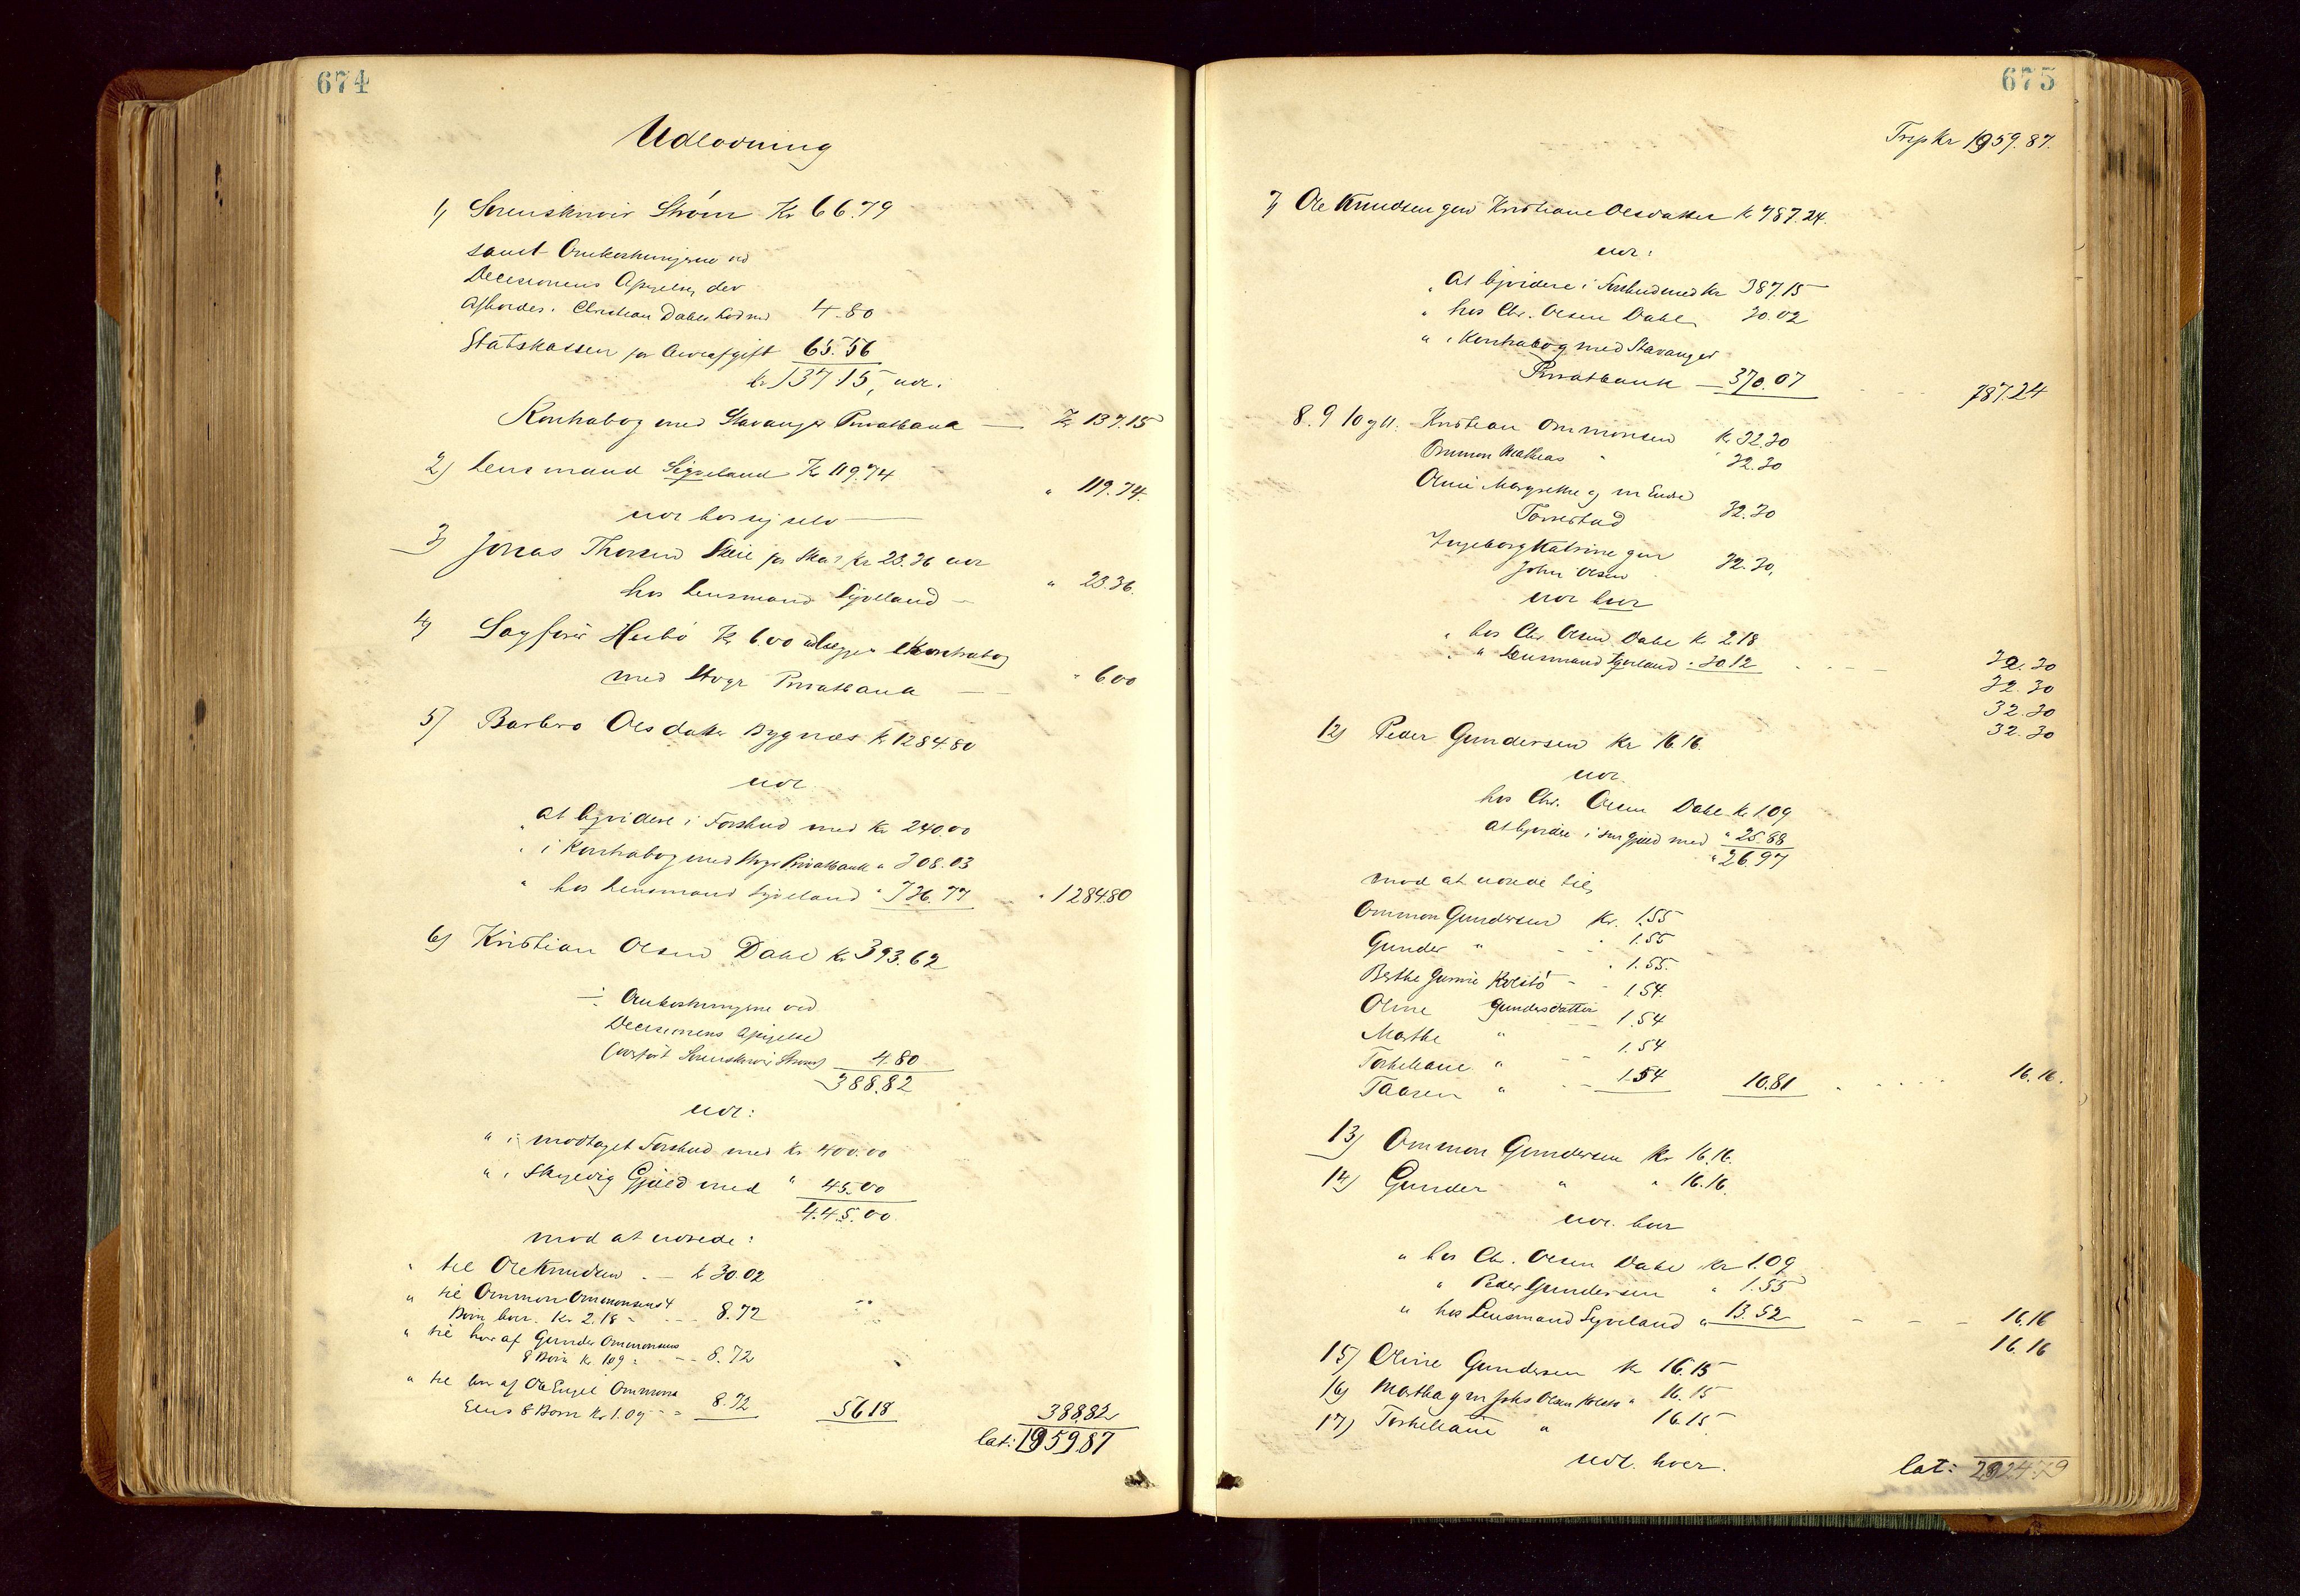 674
Udlodning
1) Sorenskriver Strøm Kr 66.79
samt Omkostningerne ved
Decisionens Afsigelse, der
afkordes. Christian Dahls Lod med 4.80
Statskassen for Arveafgift 65.56
Kr 137.15, udl.
Kontrabog med Stavanger Privatbank — Kr 137.15
2) Lensmand Sigveland Kr 119.74
udl hos sig selv — " 119.74
3) Jonas Thorsen Skeie for Skat Kr 23.36 udl
hos Lensmand Sigveland — " 23.36.
4) Sagfører Heebø Kr 6.00 udlægges i Kontrabog
med Stvgr Privatbank — " 6.00
5) Barbro Olsdatter Bygnæs Kr 1284.80
udl.
" at liqvidere i Forskud med Kr 240.00
" i Kontrabog med Stvgr Privatbank " 308.03
" hos Lensmand Sigveland " 736.77 " 1284.80
6) Kristian Olsen Dahl Kr 393.62
÷ Omkostningerne ved
Decisionens Afsigelse
(overført Sorenskriver Strøm) 4.80
388.82
udl:
" i modtaget Forskud med Kr 400.00
" i skyldig Gjæld med " 45.00
445.00
mod at udrede:
" til Ole Knudsen — Kr 30.02
" til Ommon Ommonsens 4
Børn hver Kr 2.18 - 8.72
" til hver af Gunder Ommonsens
8 Børn Kr 1.09 - 8.72
" til hver af Ole Engel Ommons
8 Børn Kr 1.09 - 8.72 56.18 388.82
lat: 1959.87
675
Trsp Kr 1959.87.
7) Ole Knudsen gm Kristiane Olsdatter Kr 787.24.
udl:
" At liqvidere i Forskud med Kr 387.15
" hos Chr. Olsen Dahl 30.02
" i Kontrabog med Stavanger
Privatbank — 370.07 787.24
8. 9 10 og 11. Kristian Ommonsen Kr 32.30
Ommon Mathias " " 32.30
Oline Margrethe g m Endre
Tornstad 32.30
Ingeborg Katrine gm
John Olsen 32.30,
udl hver
" hos Chr Olsen Dahl Kr 2.18
" " Lensmand Sigveland " 30.12 32.30
32.30
32.30
32.30
12) Peder Gundersen Kr 16.16.
udl.
hos Chr. Olsen Dahl Kr 1.09
at liqvidere i sin Gjæld med " 25.88
" 26.97
mod at udrede til,
Ommon Gundersen Kr. 1.55
Gunder " - " 1.55
Berthe Gurine Kolstø - " 1.55.
Oline Gundersdatter 1.54.
Marthe " - 1.54
Torkeliane " - 1.54
Taasen " - 1.54 10.81 16.16.
13) Ommon Gundersen Kr 16.16.
14) Gunder " " 16.16.
udl. hver
" hos Chr. Olsen Dahl Kr 1.09
" Peder Gundersen " 1.55
" hos Lensmand Sigveland " 13.52 16.16
16.16
15) Oline Gundersen Kr 16.15
16) Martha g m Johs Olsen Kolstø " 16.15
17) Torkeliane " 16.15
udl. hver.
lat: 2924.79